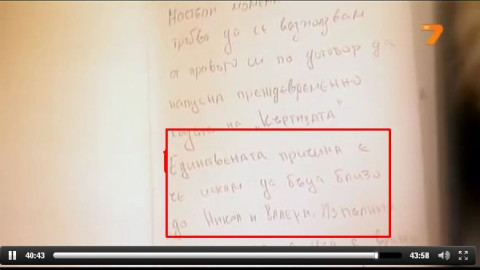 7
Настъпи момент
трябва да се възползвам
от правото си по договор да
напусна преждевременно
на "Къртицата"
Единствената причина е
че искам да бъда близо
до Никол и Валери.
40:43
43:58